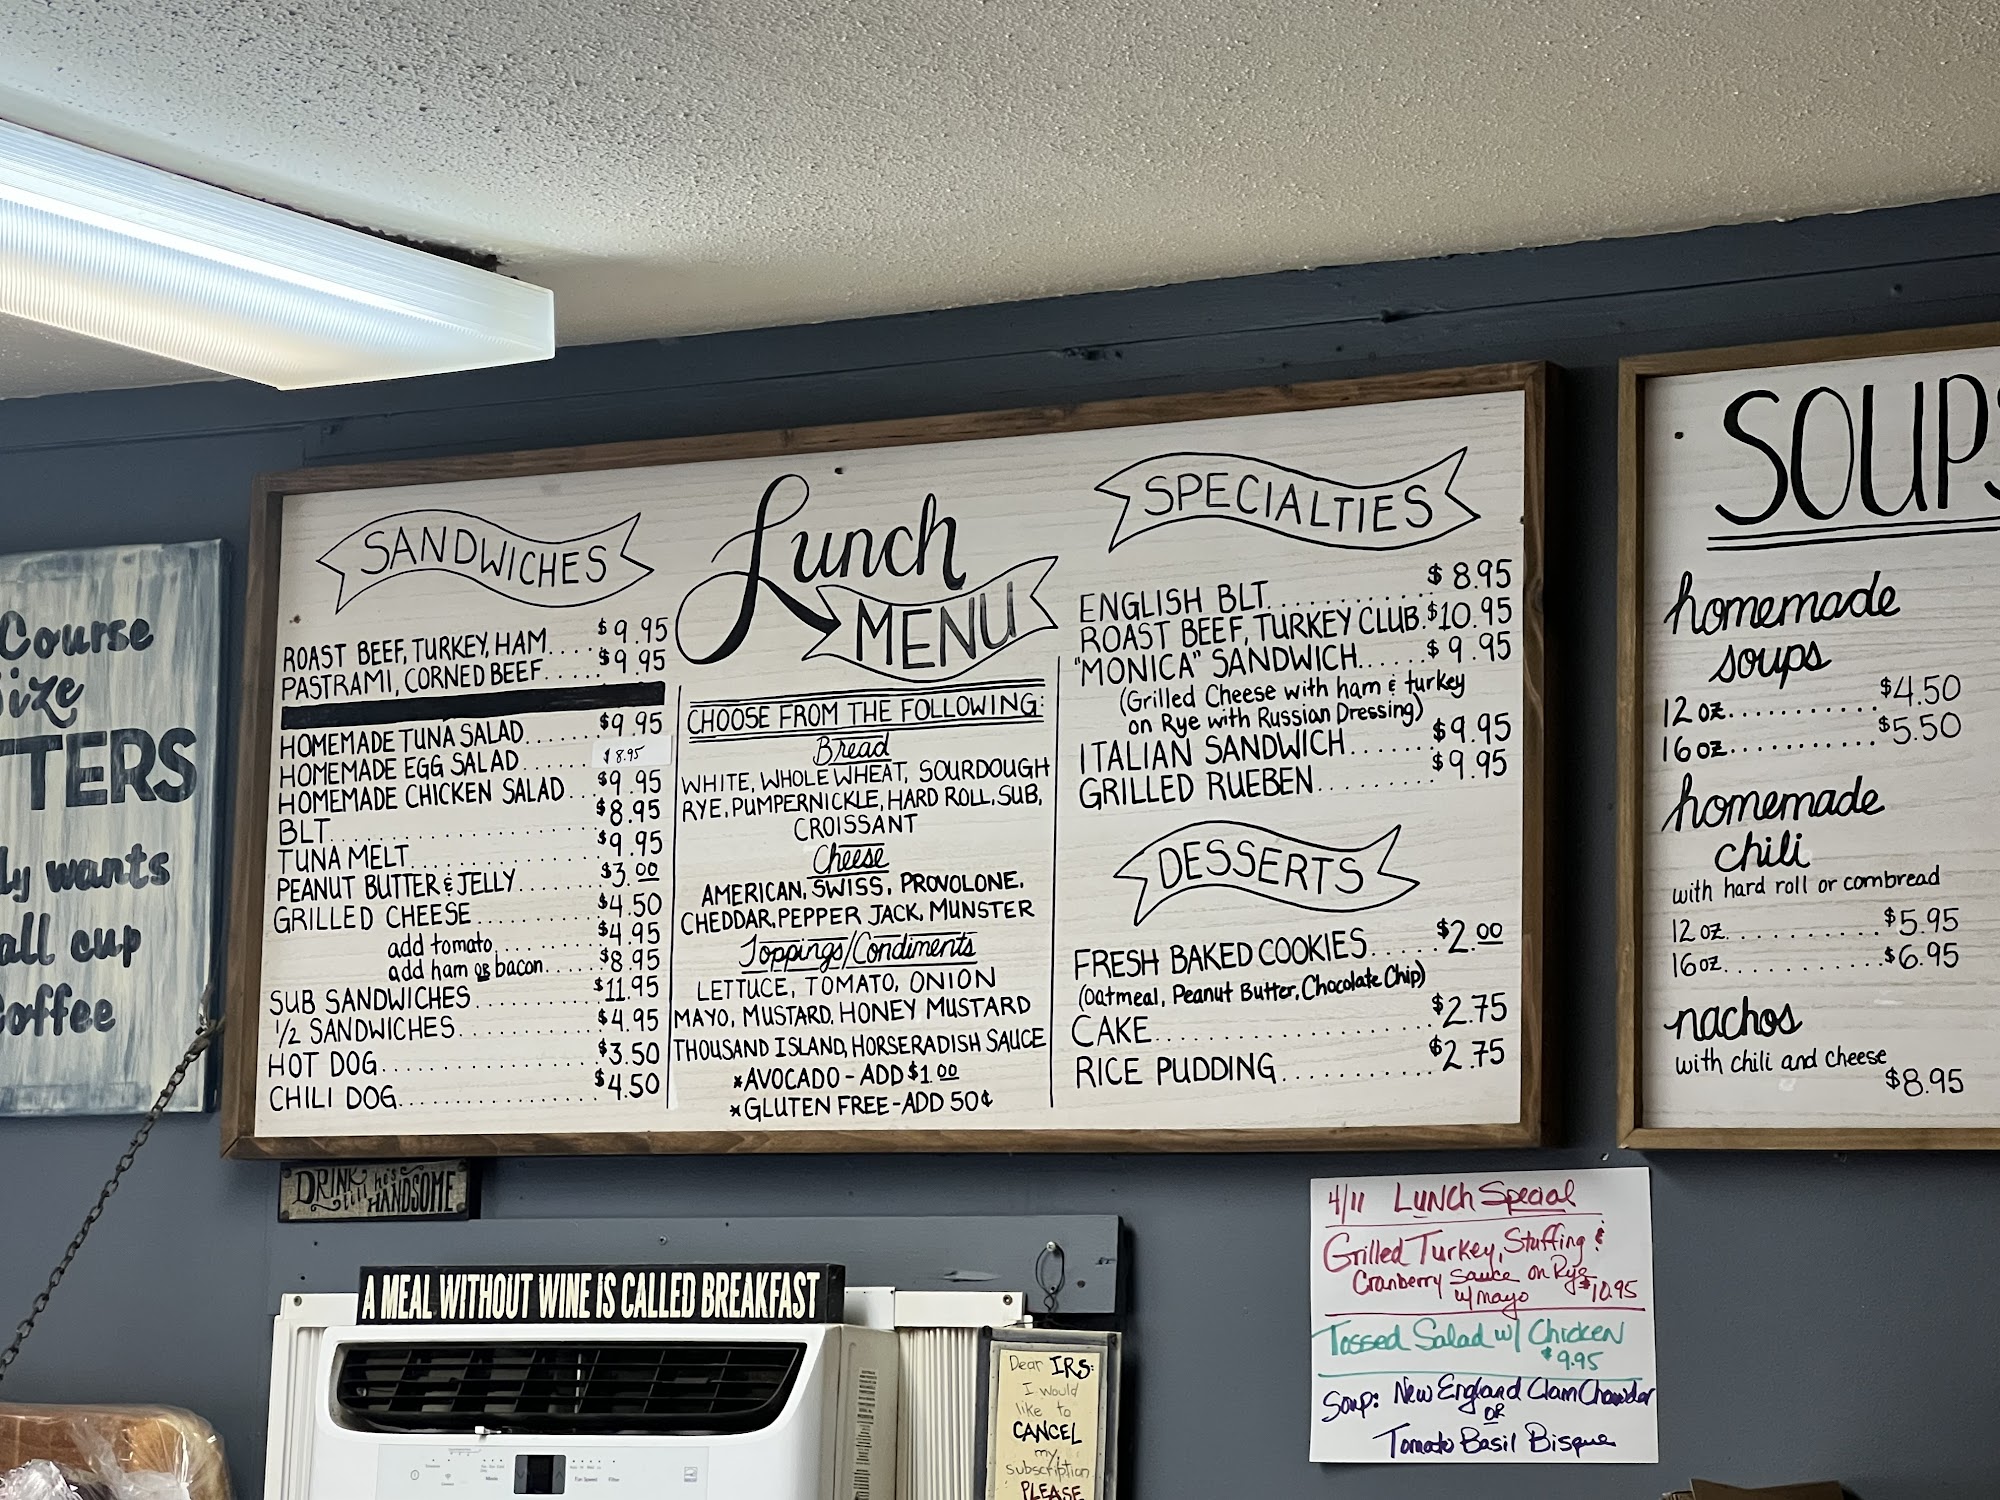 Course
Size
TTERS
ly wants
all cup
Coffee
SANDWICHES
ROAST BEEF, TURKEY, HAM.... $9.95
PASTRAMI, CORNED BEEF...... $9.95
HOMEMADE TUNA SALAD....... $9.95
HOMEMADE EGG SALAD....... $8.95
HOMEMADE CHICKEN SALAD... $9.95
BLT........................ $8.95
TUNA MELT.................. $9.95
PEANUT BUTTER & JELLY........ $3.00
GRILLED CHEESE............. $4.50
add tomato........... $4.95
add ham OR bacon..... $8.95
SUB SANDWICHES............ $11.95
1/2 SANDWICHES............. $4.95
HOT DOG.................... $3.50
CHILI DOG................... $4.50
Lunch
MENU
CHOOSE FROM THE FOLLOWING:
Bread
WHITE, WHOLE WHEAT, SOURDOUGH
RYE, PUMPERNICKLE, HARD ROLL, SUB,
CROISSANT
Cheese
AMERICAN, SWISS, PROVOLONE,
CHEDDAR, PEPPER JACK, MUNSTER
Toppings/Condiments
LETTUCE, TOMATO, ONION
MAYO, MUSTARD, HONEY MUSTARD
THOUSAND ISLAND, HORSERADISH SAUCE
*AVOCADO - ADD $1.00
*GLUTEN FREE - ADD 50¢
SPECIALTIES
ENGLISH BLT............... $8.95
ROAST BEEF, TURKEY CLUB. $10.95
"MONICA" SANDWICH...... $9.95
(Grilled Cheese with ham & turkey
on Rye with Russian Dressing)
ITALIAN SANDWICH....... $9.95
GRILLED RUEBEN......... $9.95
DESSERTS
FRESH BAKED COOKIES...... $2.00
(Oatmeal, Peanut Butter, Chocolate Chip)
CAKE....................... $2.75
RICE PUDDING............. $2.75
SOUPS
homemade
soups
12 oz............ $4.50
16 oz............ $5.50
homemade
chili
with hard roll or cornbread
12 oz............ $5.95
16oz............ $6.95
nachos
with chili and cheese
$8.95
DRINK till he's HANDSOME
A MEAL WITHOUT WINE IS CALLED BREAKFAST
Dear IRS:
I would
like to
CANCEL
my
subscription.
PLEASE
4/11 LUNCH Special
Grilled Turkey, Stuffing &
Cranberry Sauce on Rye
w/ mayo $10.95
Tossed Salad w/ Chicken
$9.95
Soup: New England Clam Chowder
OR
Tomato Basil Bisque